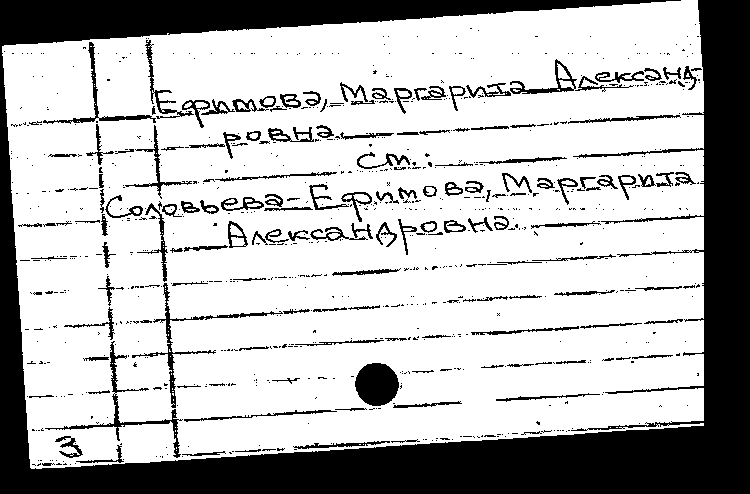 Ефимова, Маргарита Александ-
ровна.
см.:
Соловьева-Ефимова, Маргарита
Александровна.
3